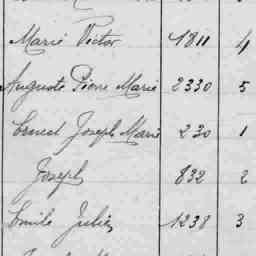 Marie Victor 1811 4
Auguste Pierre Marie 2330 5
Ernest Joseph Marie 230 1
Joseph 832 2
Emile Julien 1238 3